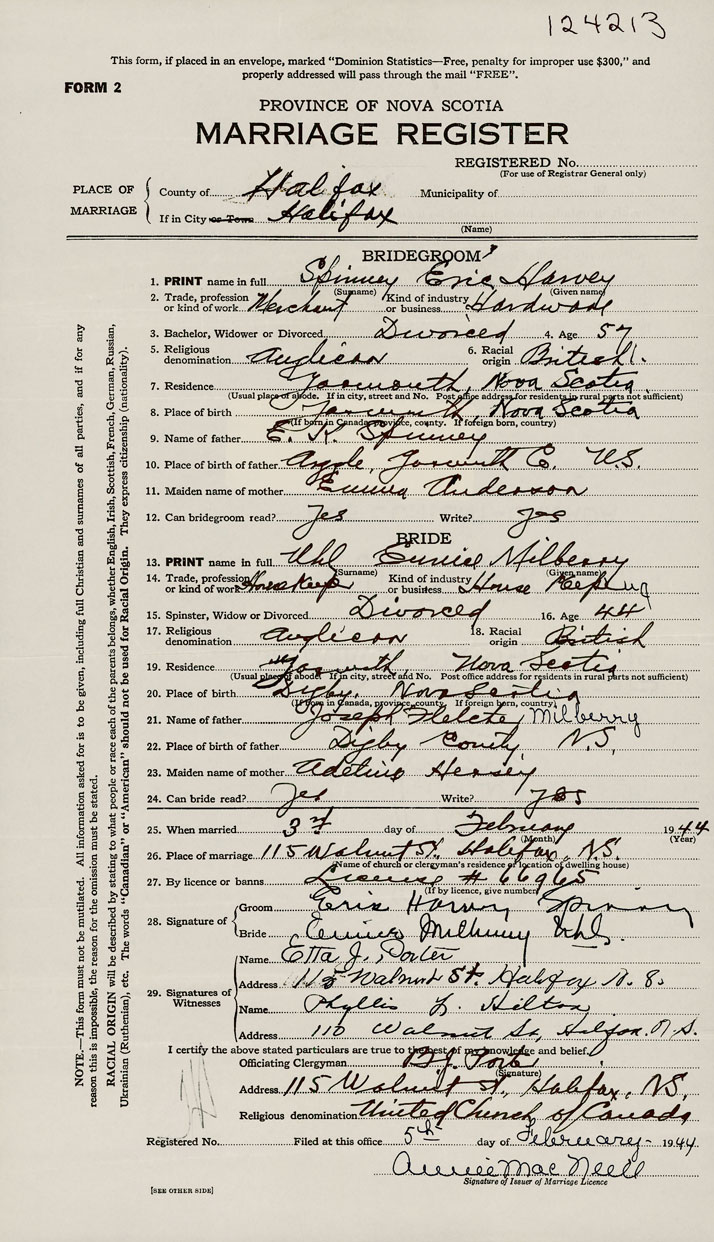 124213
This form, if placed in an envelope, marked "Dominion Statistics—Free, penalty for improper use $300," and
properly addressed will pass through the mail "FREE".
FORM 2
PROVINCE OF NOVA SCOTIA
MARRIAGE REGISTER
REGISTERED No.
(For use of Registrar General only)
PLACE OF MARRIAGE
County of Halifax Municipality of
If in City or Town Halifax
(Name)
BRIDEGROOM
1. PRINT name in full Spinney Eric Harvey
(Surname) (Given name)
2. Trade, profession or kind of work Merchant Kind of industry or business Hardware
3. Bachelor, Widower or Divorced Divorced 4. Age 57
5. Religious denomination Anglican 6. Racial origin British
7. Residence Yarmouth, Nova Scotia
(Usual place of abode. If in city, street and No. Post office address for residents in rural parts not sufficient)
8. Place of birth Yarmouth, Nova Scotia
(If born in Canada, province, county. If foreign born, country)
9. Name of father E. K. Spinney
10. Place of birth of father Argyle, Yarmouth Co. N.S.
11. Maiden name of mother Emma Anderson
12. Can bridegroom read? Yes Write? Yes
BRIDE
13. PRINT name in full Uhl Eunice Milberry
(Surname) (Given name)
14. Trade, profession or kind of work Housekeeper Kind of industry or business House Keeping
15. Spinster, Widow or Divorced Divorced 16. Age 44
17. Religious denomination Anglican 18. Racial origin British
19. Residence Yarmouth, Nova Scotia
(Usual place of abode. If in city, street and No. Post office address for residents in rural parts not sufficient)
20. Place of birth Digby, Nova Scotia
(If born in Canada, province, county. If foreign born, country)
21. Name of father Joseph Fletcher Milberry
22. Place of birth of father Digby County, N.S.
23. Maiden name of mother Hersey
24. Can bride read? Yes Write? Yes
25. When married 3rd day of February 1944
(Month) (Year)
26. Place of marriage 115 Walnut St. Halifax, N.S.
(Name of church or clergyman's residence or location of dwelling house)
27. By licence or banns License # 66965
(If by licence, give number)
28. Signature of
Groom Eric Harvey Spinney
Bride Eunice Milberry Uhl.
29. Signatures of Witnesses
Name Etta J. Porter
Address 115 Walnut St. Halifax N.S.
Name Phyllis L. Hilton
Address 110 Walnut St, Halifax. N.S.
I certify the above stated particulars are true to the best of my knowledge and belief.
Officiating Clergyman
(Signature)
Address 115 Walnut St, Halifax, N.S,
Religious denomination United Church of Canada
Registered No. Filed at this office 5th day of February 1944
Annie MacNeill
Signature of Issuer of Marriage Licence
[SEE OTHER SIDE]
NOTE.—This form must not be mutilated. All information asked for is to be given, including full Christian and surnames of all parties, and if for any
reason this is impossible, the reason for the omission must be stated.
RACIAL ORIGIN will be described by stating to what people or race each of the parents belongs, whether English, Irish, Scottish, French, German, Russian,
Ukrainian (Ruthenian), etc. The words "Canadian" or "American" should not be used for Racial Origin. They express citizenship (nationality).